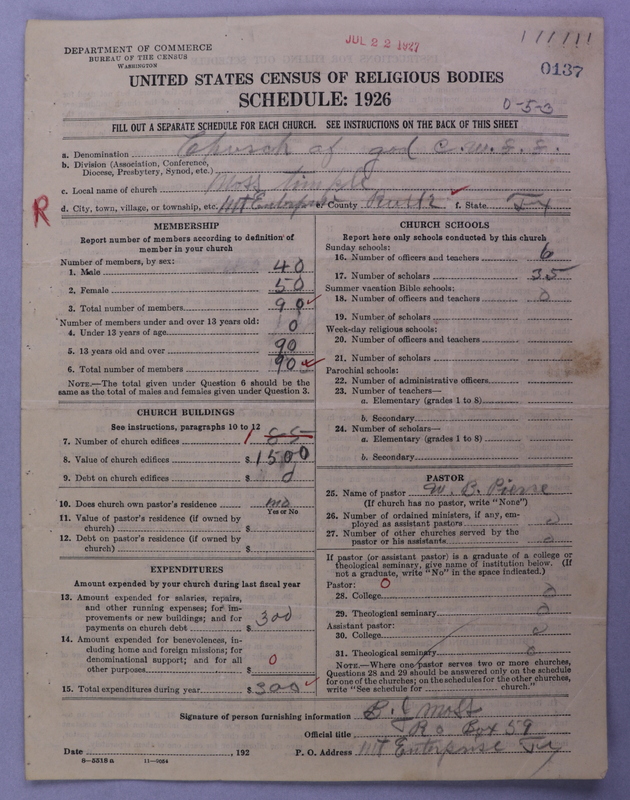 JUL 22 1927
DEPARTMENT OF COMMERCE
BUREAU OF THE CENSUS
WASHINGTON
0137
UNITED STATES CENSUS OF RELIGIOUS BODIES
SCHEDULE: 1926
0-5-3
FILL OUT A SEPARATE SCHEDULE FOR EACH CHURCH. SEE INSTRUCTIONS ON THE BACK OF THIS SHEET
a. Denomination Church of god
b. Division (Association, Conference, Diocese, Presbytery, Synod, etc.)
c. Local name of church Moss timple
d. City, town, village, or township, etc. MT Enterprise e. County f. State Tx
R
MEMBERSHIP
Report number of members according to definition of
member in your church
Number of members, by sex:
1. Male 40
2. Female 50
3. Total number of members 90
Number of members under and over 13 years old:
4. Under 13 years of age 0
5. 13 years old and over 90
6. Total number of members 90
NOTE.—The total given under Question 6 should be the
same as the total of males and females given under Question 3.
CHURCH BUILDINGS
See instructions, paragraphs 10 to 12
7. Number of church edifices 1
8. Value of church edifices $ 1500
9. Debt on church edifices $ 0
10. Does church own pastor's residence no
Yes or No
11. Value of pastor's residence (if owned by
church) $
12. Debt on pastor's residence (if owned by
church) $
EXPENDITURES
Amount expended by your church during last fiscal year
13. Amount expended for salaries, repairs,
and other running expenses; for im-
provements or new buildings; and for
payments on church debt $ 300
14. Amount expended for benevolences, in-
cluding home and foreign missions; for
denominational support; and for all
other purposes $ 0
15. Total expenditures during year $ 300
CHURCH SCHOOLS
Report here only schools conducted by this church
Sunday schools:
16. Number of officers and teachers 6
17. Number of scholars 35
Summer vacation Bible schools:
18. Number of officers and teachers 0
19. Number of scholars
Week-day religious schools:
20. Number of officers and teachers
21. Number of scholars
Parochial schools:
22. Number of administrative officers
23. Number of teachers—
a. Elementary (grades 1 to 8)
b. Secondary
24. Number of scholars—
a. Elementary (grades 1 to 8)
b. Secondary
PASTOR
25. Name of pastor W. B. Pierre
(If church has no pastor, write "None")
26. Number of ordained ministers, if any, em-
ployed as assistant pastors 0
27. Number of other churches served by the
pastor or his assistants 0
If pastor (or assistant pastor) is a graduate of a college or
theological seminary, give name of institution below. (If
not a graduate, write "No" in the space indicated.)
Pastor: 0
28. College 0
29. Theological seminary 0
Assistant pastor:
30. College 0
31. Theological seminary 0
NOTE.—Where one pastor serves two or more churches,
Questions 28 and 29 should be answered only on the schedule
for one of the churches; on the schedules for the other churches,
write "See schedule for church."
Signature of person furnishing information B. J Moss
Official title R 2 Box 59
Date , 192 P. O. Address MT Enterprise Tx
8—5318 a 11—9054